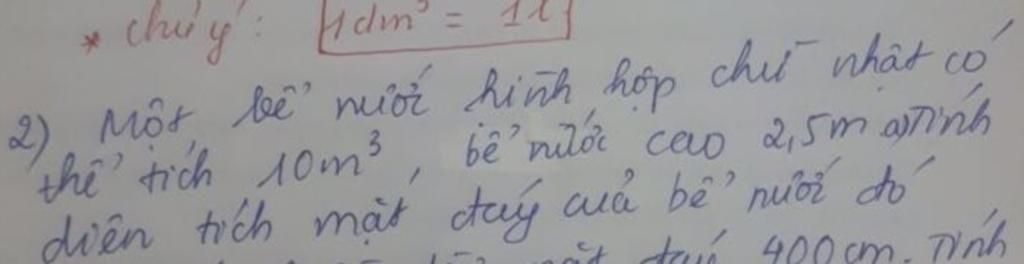 * chú ý: 1dm³ = 1l
2) Một bể nước hình hộp chữ nhật có
thể tích 10m³, bể nước cao 2,5m a) Tính
diên tích mặt đáy của bể nước đó
mặt đáy 400cm. Tính